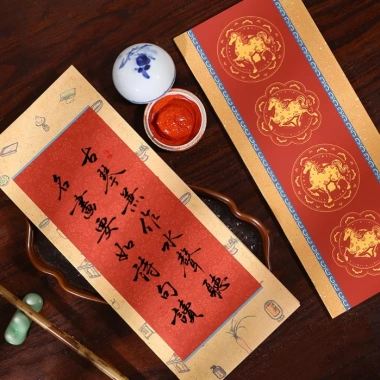 古琴兼作水聲聽
名畫要如詩句讀